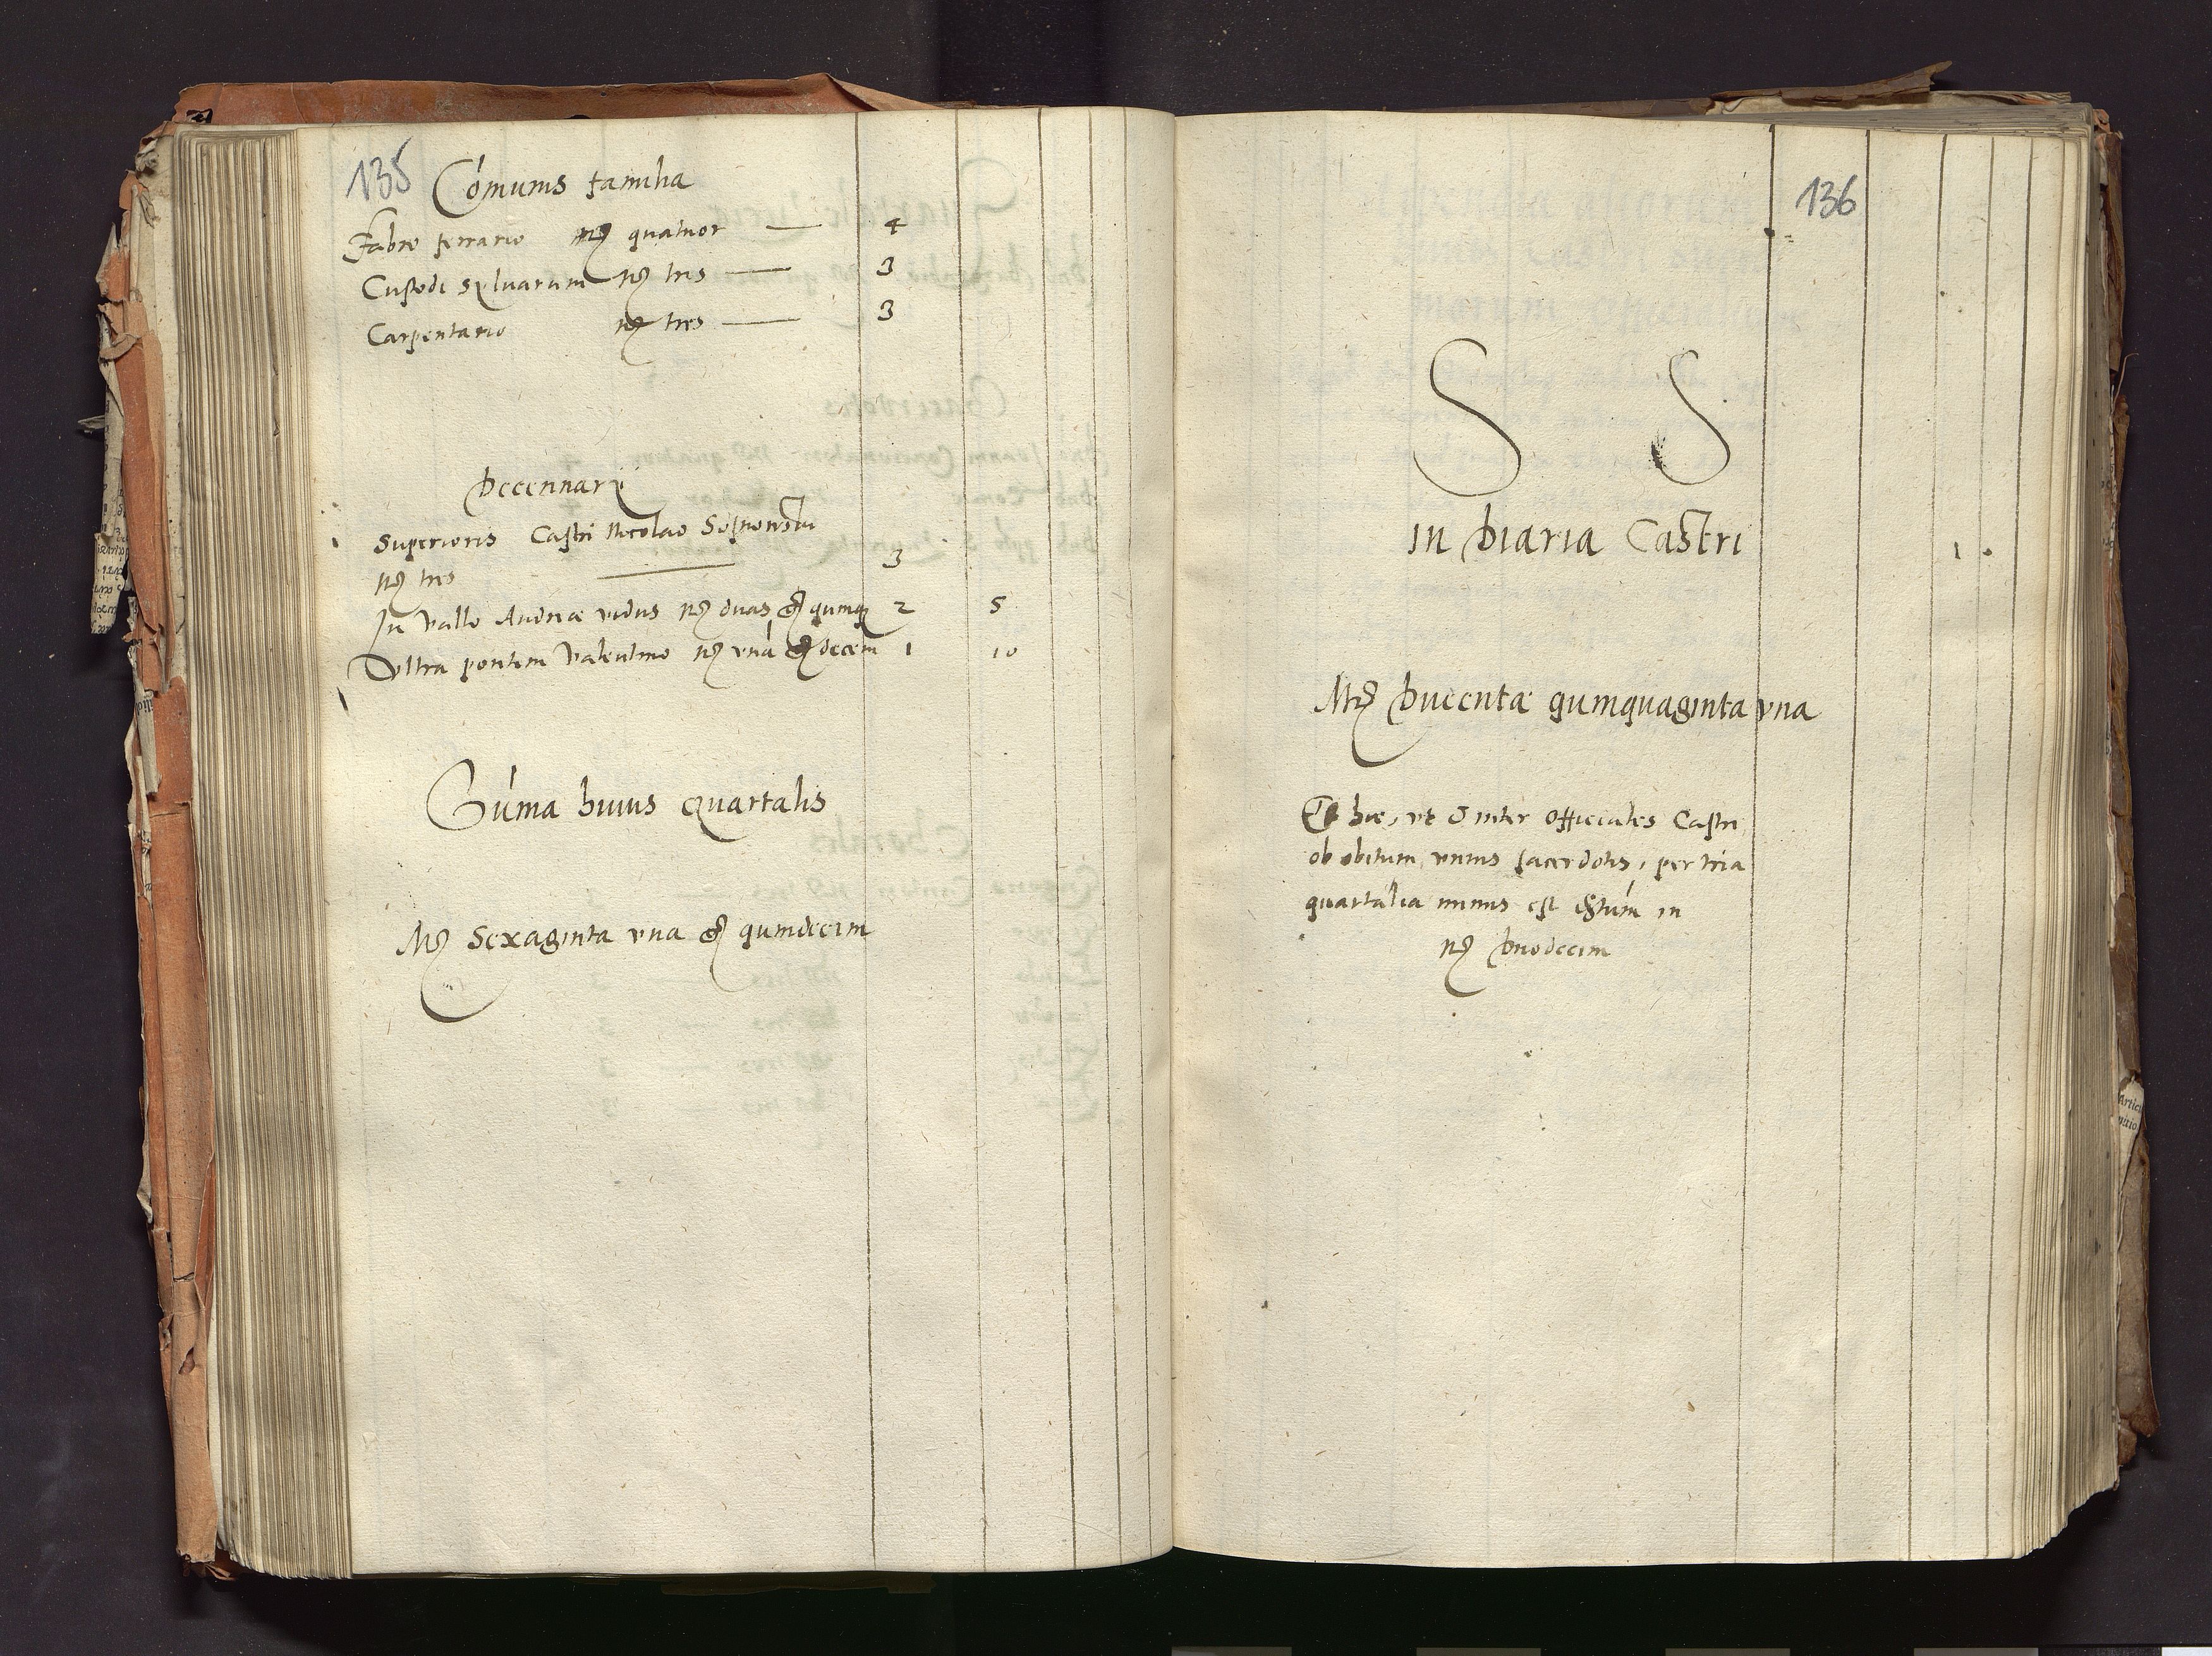 135
Com̄unis familia
Fabro ferrario mrc quatuor — 4
Custodi sylvarum mrc tres — 3
Carpentario mrc tres — 3
Decennary
Superioris Castri Nicolao
mrc tres — 3
In vallo Andreæ vidus mrc duas gr quinq 2 5
Ultra pontem Valentino mrc unā gr decem 1 10
Sum̄a huius Quartalis
Mrc Sexaginta una gr quindecim
136
S S
in Diaria Castri 1
Mrc Ducentæ quinquaginta una
Et hic, ut & inter Officiales Castri
ob obitum unius sacerdotis, per tria
quartalia minus est in
mrc Duodecim